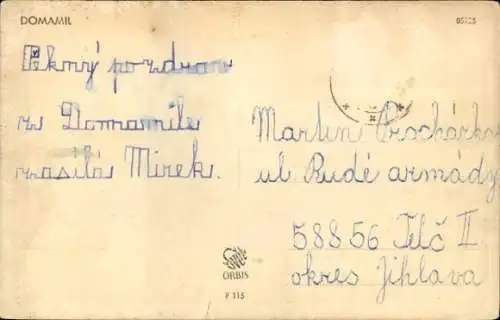 DOMAMIL
Pěkný pozdrav
z Domamile
zasílá Mirek.
Martin
ul Rudé armády
58856 Telč II
okres Jihlava
ORBIS
P 115